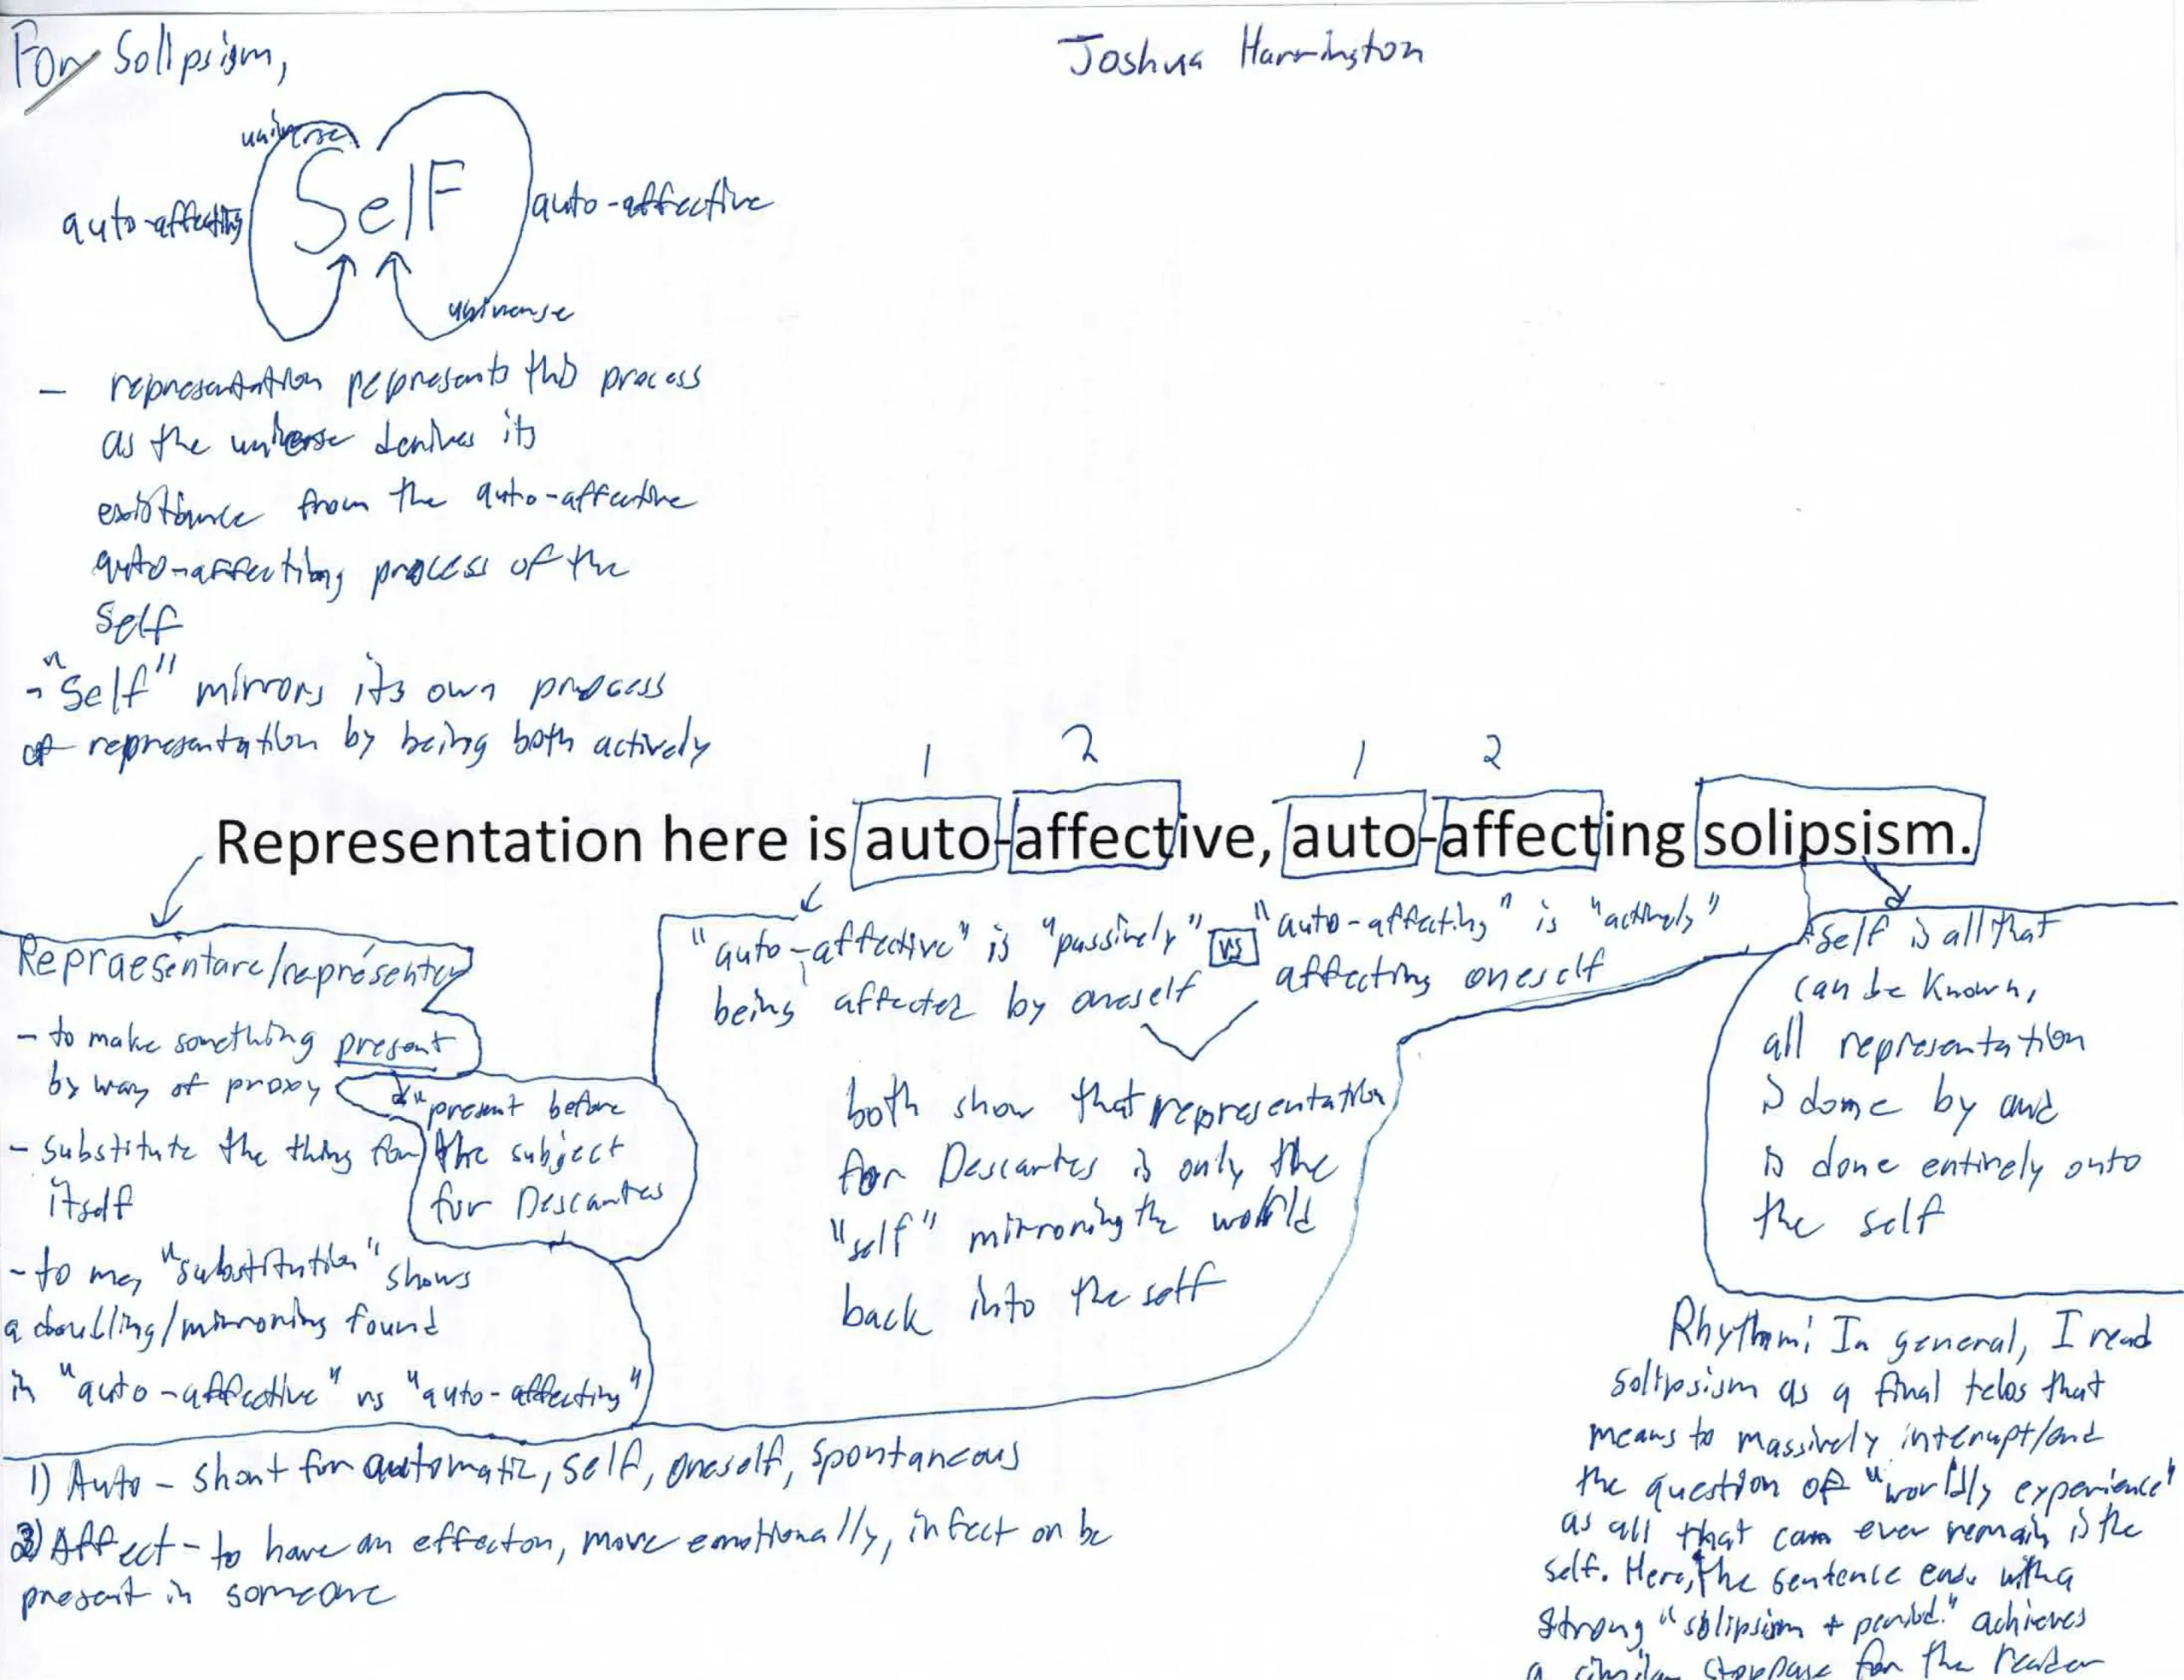 For Solipsism,
Joshua Harrington
universe
Self
auto-affecting
auto-affective
universe
- representation represents this process
as the universe derives its
existance from the auto-affective
auto-affecting process of the
Self
- "Self" mirrors its own process
of representation by being both actively
1 2 1 2
Representation here is auto-affective, auto-affecting solipsism.
Repraesentare/représenter
- to make something present
by way of proxy
- substitute the thing for
itself
- to me, "substitution" shows
a doubling/mirroring found
in "auto-affective" vs "auto-affecting"
present before
the subject
for Descartes
"auto-affective" is "passively"
being affected by oneself
vs
"auto-affecting" is "actively"
affecting oneself
both show that representation
for Descartes is only the
"self" mirroring the world
back into the self
self is all that
can be known,
all representation
is done by and
is done entirely onto
the self
1) Auto - short for automatic, self, oneself, spontaneous
2) Affect - to have an effect on, move emotionally, infect or be
present in someone
Rhythm: In general, I read
solipsism as a final telos that
means to massively interrupt/end
the question of "worldly experience"
as all that can ever remain is the
self. Here, the sentence ends with a
strong "solipsism + period." achieves
a similar stoppage for the reader